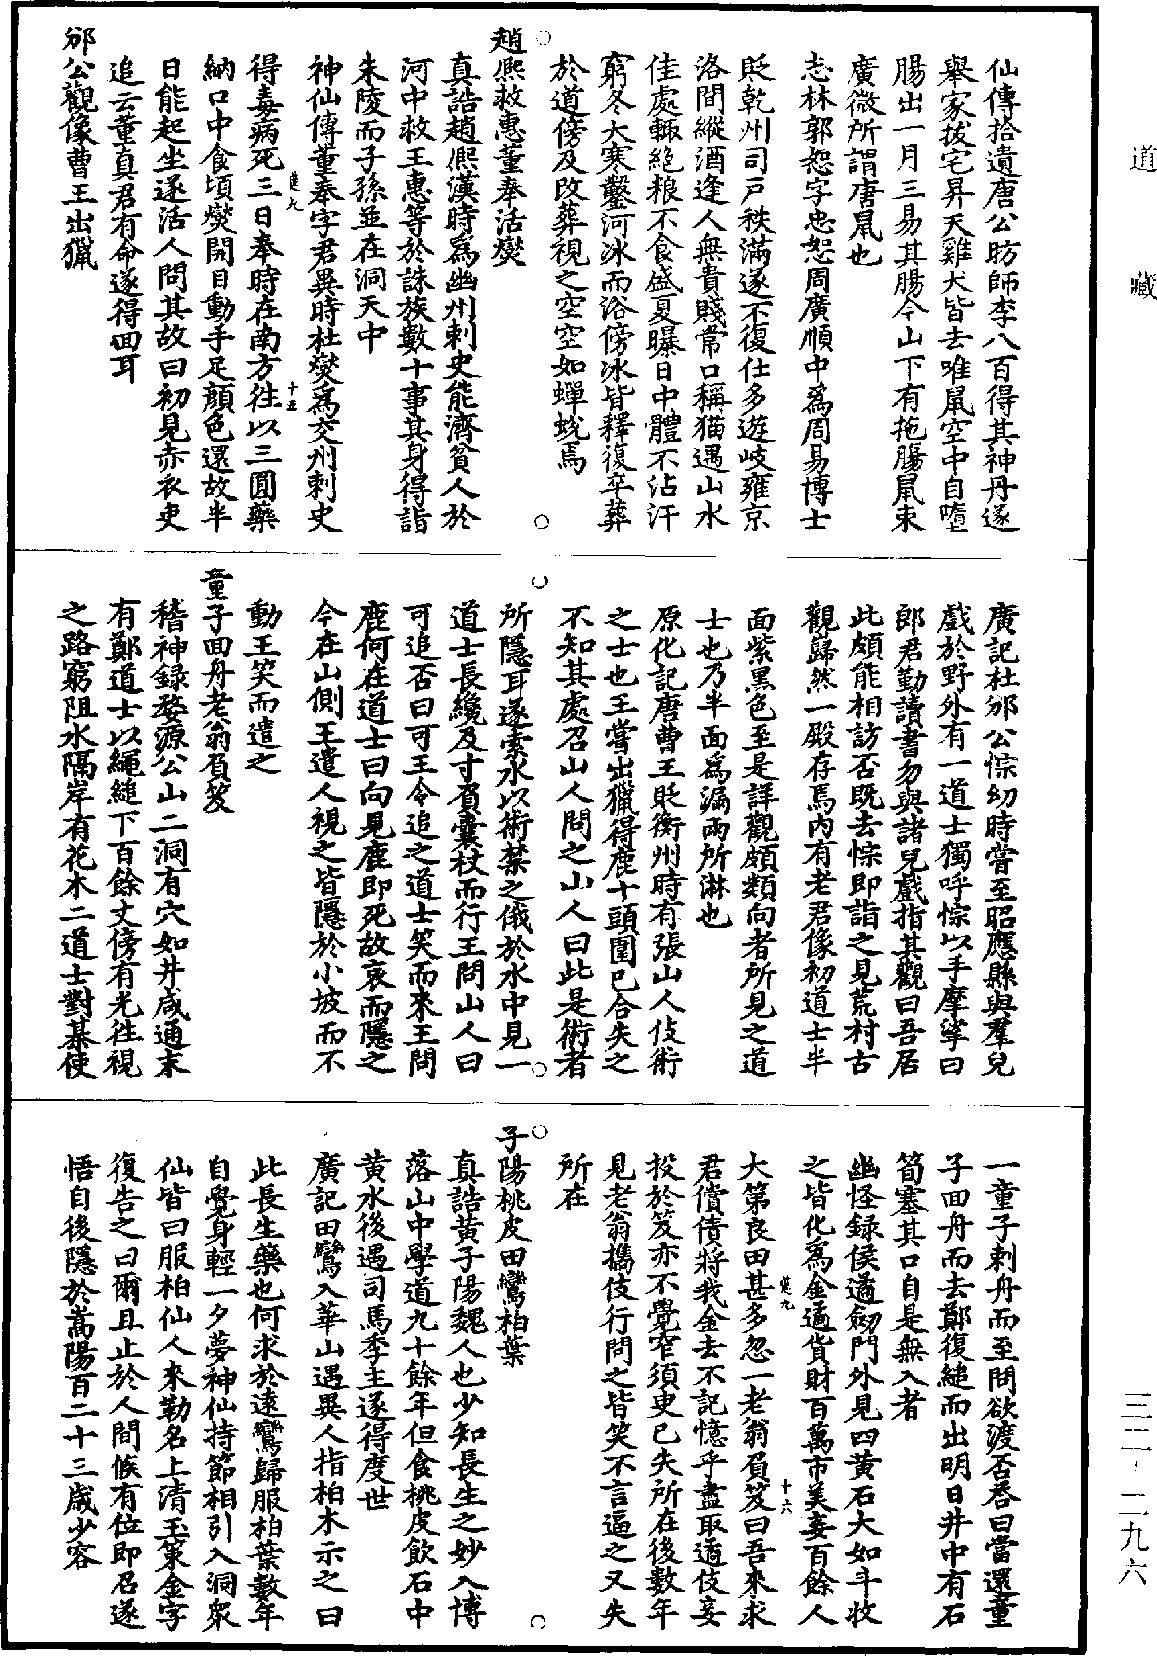 道藏
仙傳拾遺唐公昉師李八百得其神丹遂
舉家拔宅昇天雞犬皆去唯鼠空中自墮
腸出一月三易其腸今山下有拖腸鼠束
廣微所謂唐鼠也
志林郭恕字忠恕周廣順中爲周易博士
貶乾州司戶秩滿遂不復仕多遊岐雍京
洛間縱酒逢人無貴賤常口稱猫遇山水
佳處輒絕粮不食盛夏曝日中體不沾汗
窮冬大寒鑿河冰而浴傍冰皆釋復卒葬
於道傍及改葬視之空空如蟬蛻焉
趙熙救惠董奉活燮
真誥趙熙漢時爲幽州刺史能濟貧人於
河中救王惠等於誅族數十事其身得詣
朱陵而子孫並在洞天中
神仙傳董奉字君異時杜燮爲交州刺史
得毒病死三日奉時在南方往以三圓藥
十五
納口中食頃燮開目動手足顏色還故半
日能起坐遂活人問其故曰初見赤衣吏
追云董真君有命遂得回耳
邠公觀像曹王出獵
廣記杜邠公悰幼時嘗至昭應縣與羣兒
戲於野外有一道士獨呼悰以手摩挲曰
郎君勤讀書勿與諸兒戲指其觀曰吾居
此頗能相訪否既去悰即詣之見荒村古
觀歸然一殿存焉內有老君像初道士半
面紫黑色至是詳觀頗類向者所見之道
士也乃半面爲漏雨所淋也
原化記唐曹王貶衡州時有張山人伎術
之士也王嘗出獵得鹿十頭圍已合失之
不知其處召山人問之山人曰此是術者
所隱耳遂索水以術禁之俄於水中見一
道士長纔及寸負囊杖而行王問山人曰
可追否曰可王令追之道士笑而來王問
鹿何在道士曰向見鹿即死故哀而隱之
今在山側王遣人視之皆隱於小坡而不
動王笑而遣之
童子回舟老翁負笈
稽神録婺源公山二洞有穴如井咸通末
有鄭道士以繩縋下百餘丈傍有光往視
之路窮阻水隔岸有花木二道士對棊使
一童子刺舟而至問欲渡否荅曰當還童
子回舟而去鄭復縋而出明日井中有石
筍塞其口自是無入者
幽怪録侯遁劒門外見四黃石大如斗收
之皆化爲金遁貨財百萬市美妾百餘人
大第良田甚多忽一老翁負笈曰吾來求
十六
君償債將我金去不記憶乎盡取遁伎妾
投於笈亦不覺窄須臾已失所在後數年
見老翁攜伎行問之皆笑不言逼之又失
所在
子陽桃皮田鸞柏葉
真誥黃子陽魏人也少知長生之妙入博
落山中學道九十餘年但食桃皮飲石中
黃水後遇司馬季主遂得度世
廣記田鸞入華山遇異人指柏木示之曰
此長生藥也何求於遠鸞歸服柏葉數年
自覺身輕一夕夢神仙持節相引入洞衆
仙皆曰服柏仙人來勒名上清玉策金字
復告之曰爾且止於人間候有位即召遂
悟自後隱於嵩陽百二十三歲少容
三二·二九六